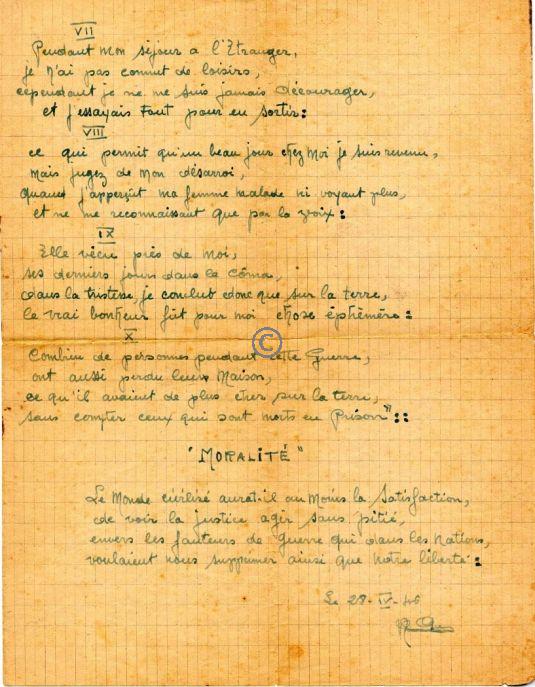 VII
Pendant mon séjour a l'Etranger,
je n'ai pas connut de loisirs,
cependant je ne me suis jamais décourager,
et j'essayais tout pour en sortir:
VIII
ce qui permit qu'un beau jour chez moi je suis revenu,
mais jugez de mon désarroi,
quand j'apperçut ma femme malade ni voyant plus,
et ne me reconnaissant que par la voix:
IX
Elle vécu près de moi,
ses derniers jours dans le Côma,
dans la tristesse, je conclut donc que sur la terre,
le vrai bonheur fût pour moi chose éphémère:
X
©
Combien de personnes pendant cette Guerre,
ont aussi perdu leurs Maison,
ce qu'il avaient de plus cher sur la terre,
sans compter ceux qui sont morts en Prison"::
"MORALITÉ"
Le Monde civilisé aurat-il au moins la satisfaction,
de voir la justice agir sans pitié,
envers les fauteurs de guerre qui dans les Nations,
voulaient nous supprimer ainsi que notre liberté:
Le 28-IV-46